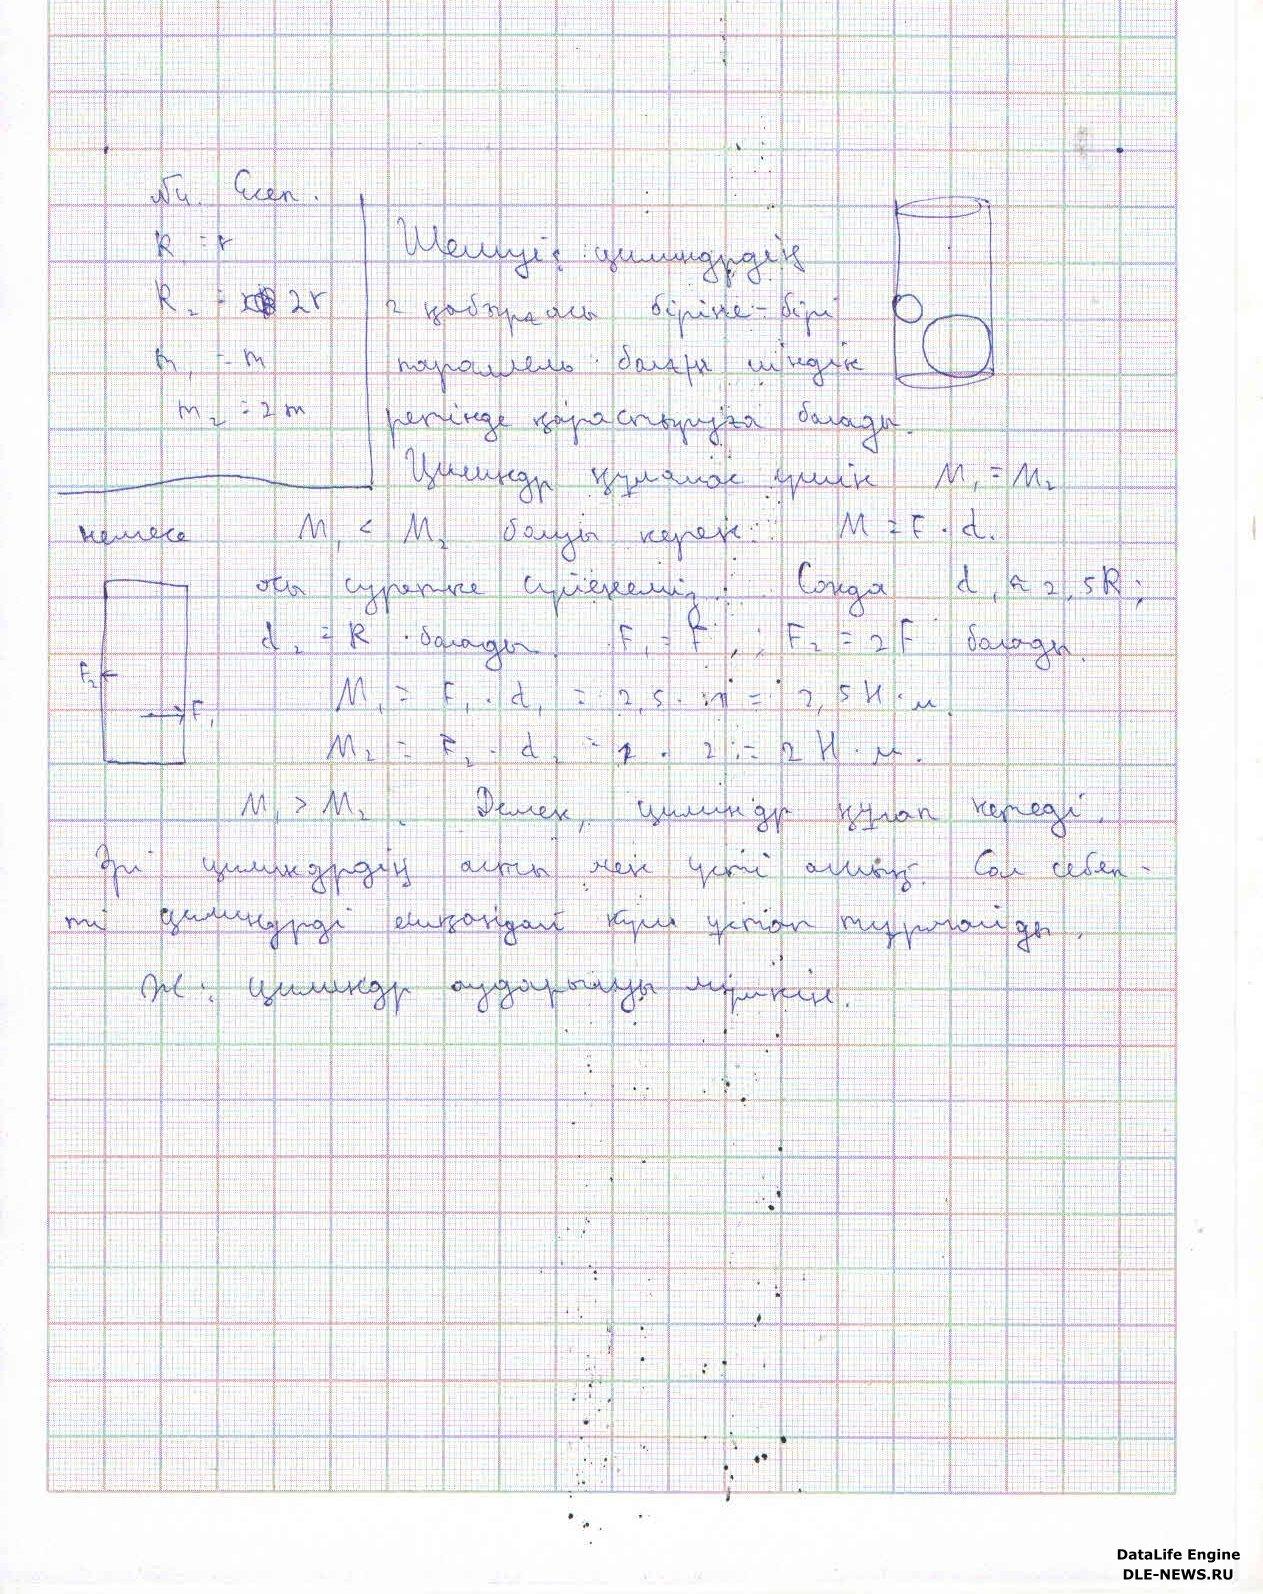 №4. Есеп.
R₁ = r
R₂ = 2r
m₁ = m
m₂ = 2m
Шешуі: цилиндрдің
2 қабырғасы біріне-бірі
параллель болғн иіндік
ретінде қарастыруға болады.
Цилиндр құламас үшін M₁ = M₂
немесе M₁ < M₂ болуы керек. M = F · d.
осы суретке сүйенеміз. Сонда d₁ ≈ 2,5R;
d₂ = R болады. F₁ = F; F₂ = 2F болады.
F₂
F₁
M₁ = F₁ · d₁ = 2,5 · = 2,5 Н·м.
M₂ = F₂ · d₂ = 1 · 2 = 2 Н·м.
M₁ > M₂. Демек, цилиндр құлап кетеді.
Әрі цилиндрдің асты мен үсті ашық. Сол себеп-
ті цилиндрді ешқандай күш ұстап тұрмайды.
Ж: цилиндр аударылуы мүмкін.
DataLife Engine
DLE-NEWS.RU